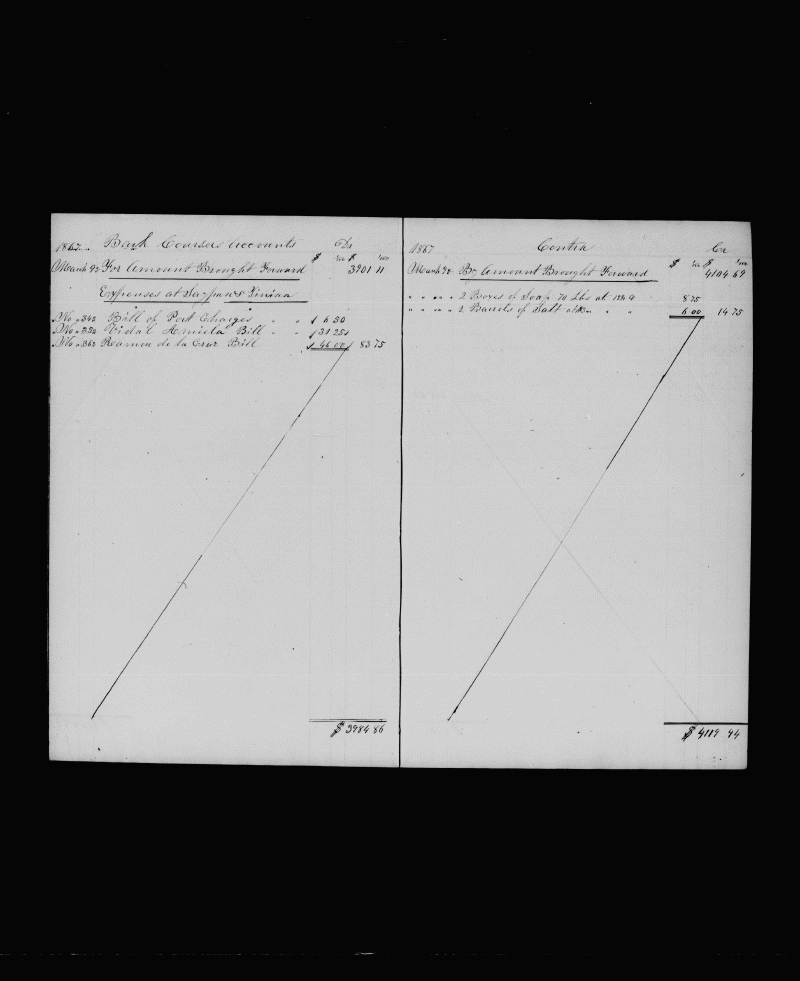 1867. Bark Coursers Accounts Dr
$ $
March For Amount Brought Forward 3901 11
Expenses at Saypan & Tinian
No. 343 Bill of Port Charges " " $ 6 50
No. 350 Vidal Bill " " $ 31 25
No. 360 Ramon de la Cruz Bill $ 46 00 $ 83 75
$ 3984 86
1867 Contra Cr
$ $
March By Amount Brought Forward 4104 69
" " " " 2 Boxes of Soap 70 Lbs at 12½ 8 75
" " " " 2 Barrels of Salt " " 6 00 14 75
$ 4119 44